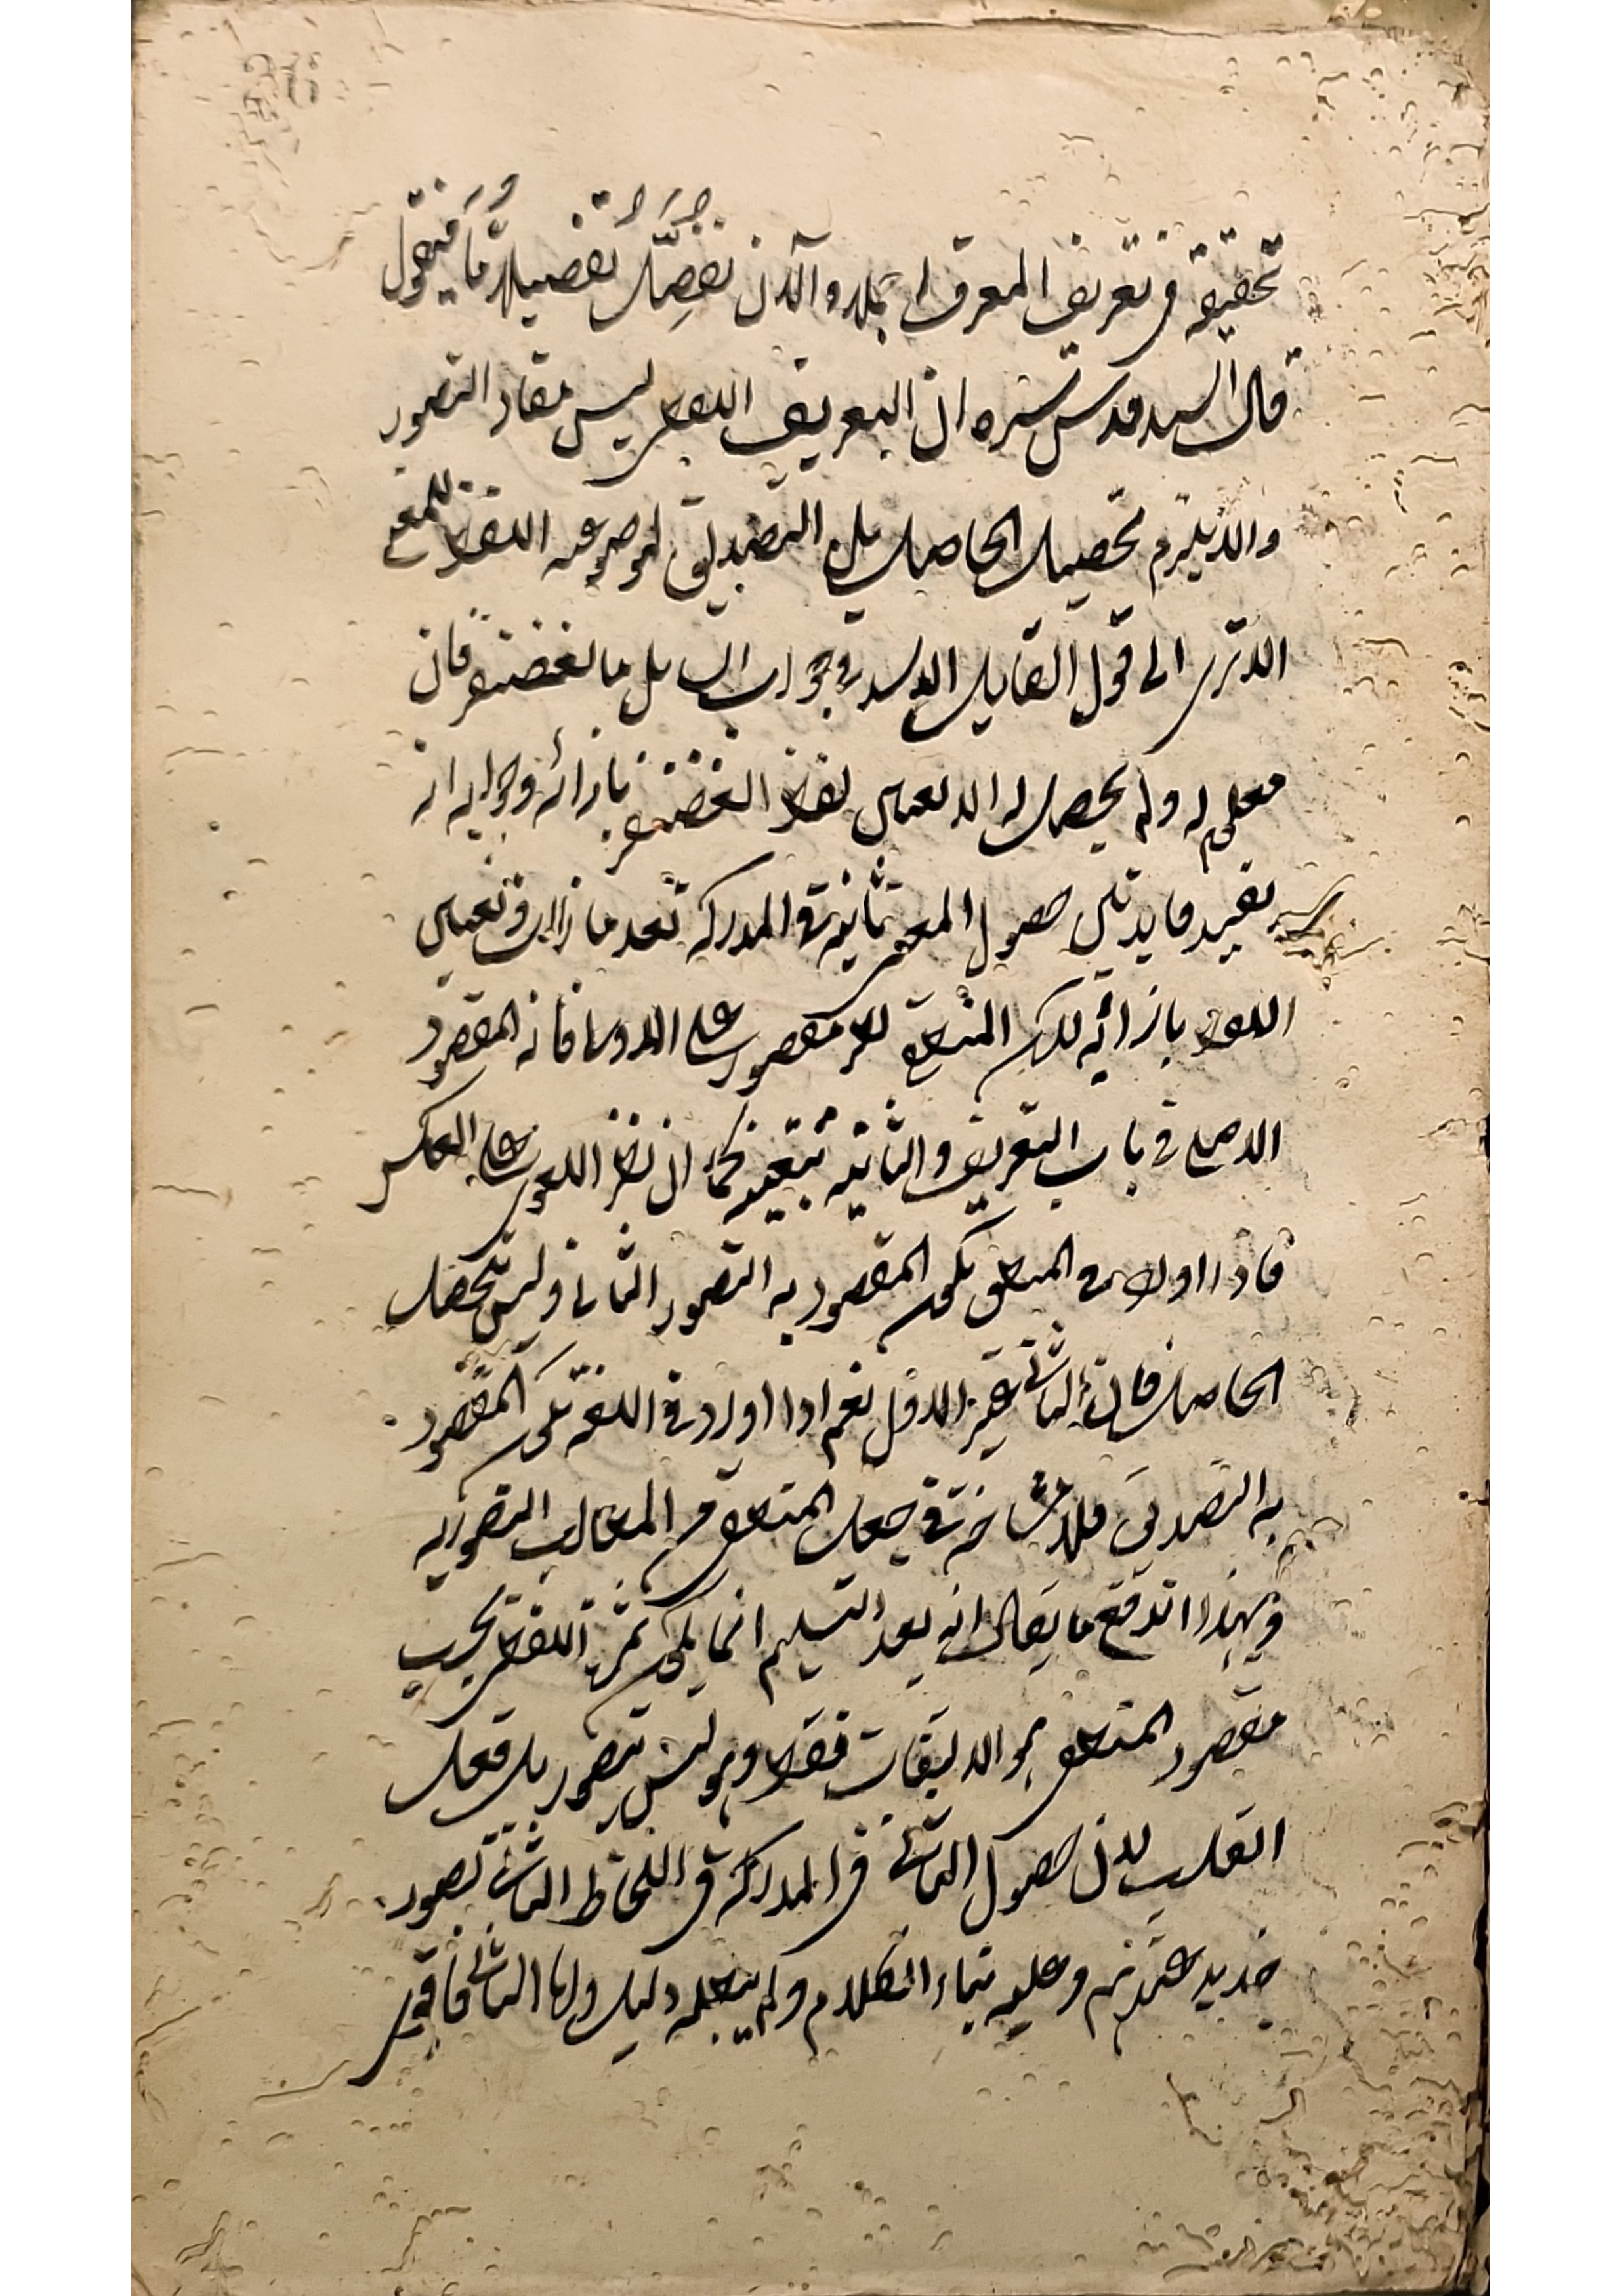 تحقيقه في تعريف المعرف اجملا والآن نفصل تفصيلا ما فنقول
قال السيد قدس سره ان التعريف اللفظي ليس مفاد التصور
والا يلزم تحصيل الحاصل بل التصديق لموضوعية اللفظ للمعنى
الا ترى الى قول القايل الاسد في جواب السايل ما الغضنفر فان
معلوم له ولم يحصل له الا نفس لفظ الغضنفر بازائه وجوابه انه
يفيد فايدتين حصول المعنى ثانية في المدركة بعد ما زالت وتعيين
اللفظ بازائه لكن المنطقي نظر مقصور على الاولى فانه المقصود
الاصلي في باب التعريف والثانية تبعية كما ان نظر اللغوي على العكس
فاذا اورد في المنطق يكون المقصود به التصور الثاني وليس تحصيل
الحاصل فان الثاني غير الاول نعم اذا اورد في اللغة يكون المقصود
به التصديق فلا مشاحة في جعل المنطقي من المطالب التصورية
وبهذا اندفع ما يقال انه بعد التسليم انما يكون ثمرة اللفظي بحسب
مقصود المنطقي هو الالتفات فقط وهو ليس بتصور بل فعل
القلب لان حصول الثاني في المدركة في اللحاظ الثاني تصور
جديد عندهم وعليه بناء الكلام ولم يبطله دليل واما الثاني فاقوى